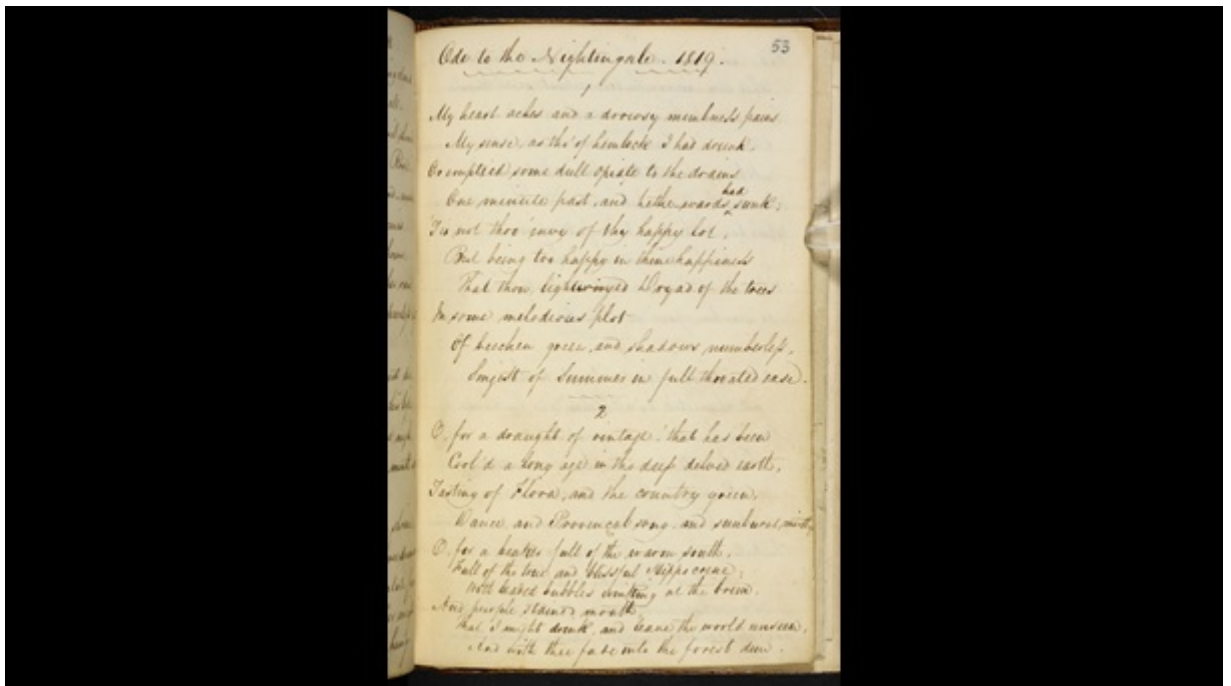 53
Ode to the Nightingale. 1819.
1
My heart aches and a drowsy numbness pains
My sense, as tho' of hemlock I had drunk,
Or emptied some dull opiate to the drains
One minute past, and Lethe wards had sunk:
'Tis not thro' envy of thy happy lot,
But being too happy in thine happiness
That thou, lightwinged Dryad of the trees
In some melodious plot
Of beechen green, and shadows numberless,
Singest of Summer in full throated ease.
2
O, for a draught of vintage! that has been
Cool'd a long age in the deep delved earth,
Tasting of Flora, and the country green,
Dance, and Provencal song, and sunburnt mirth,
O, for a beaker full of the warm south,
Full of the true and blissful Hippocrene,
With beaded bubbles winking at the brim,
And purple stained mouth
That I might drink, and leave the world unseen,
And with thee fade into the forest dim.